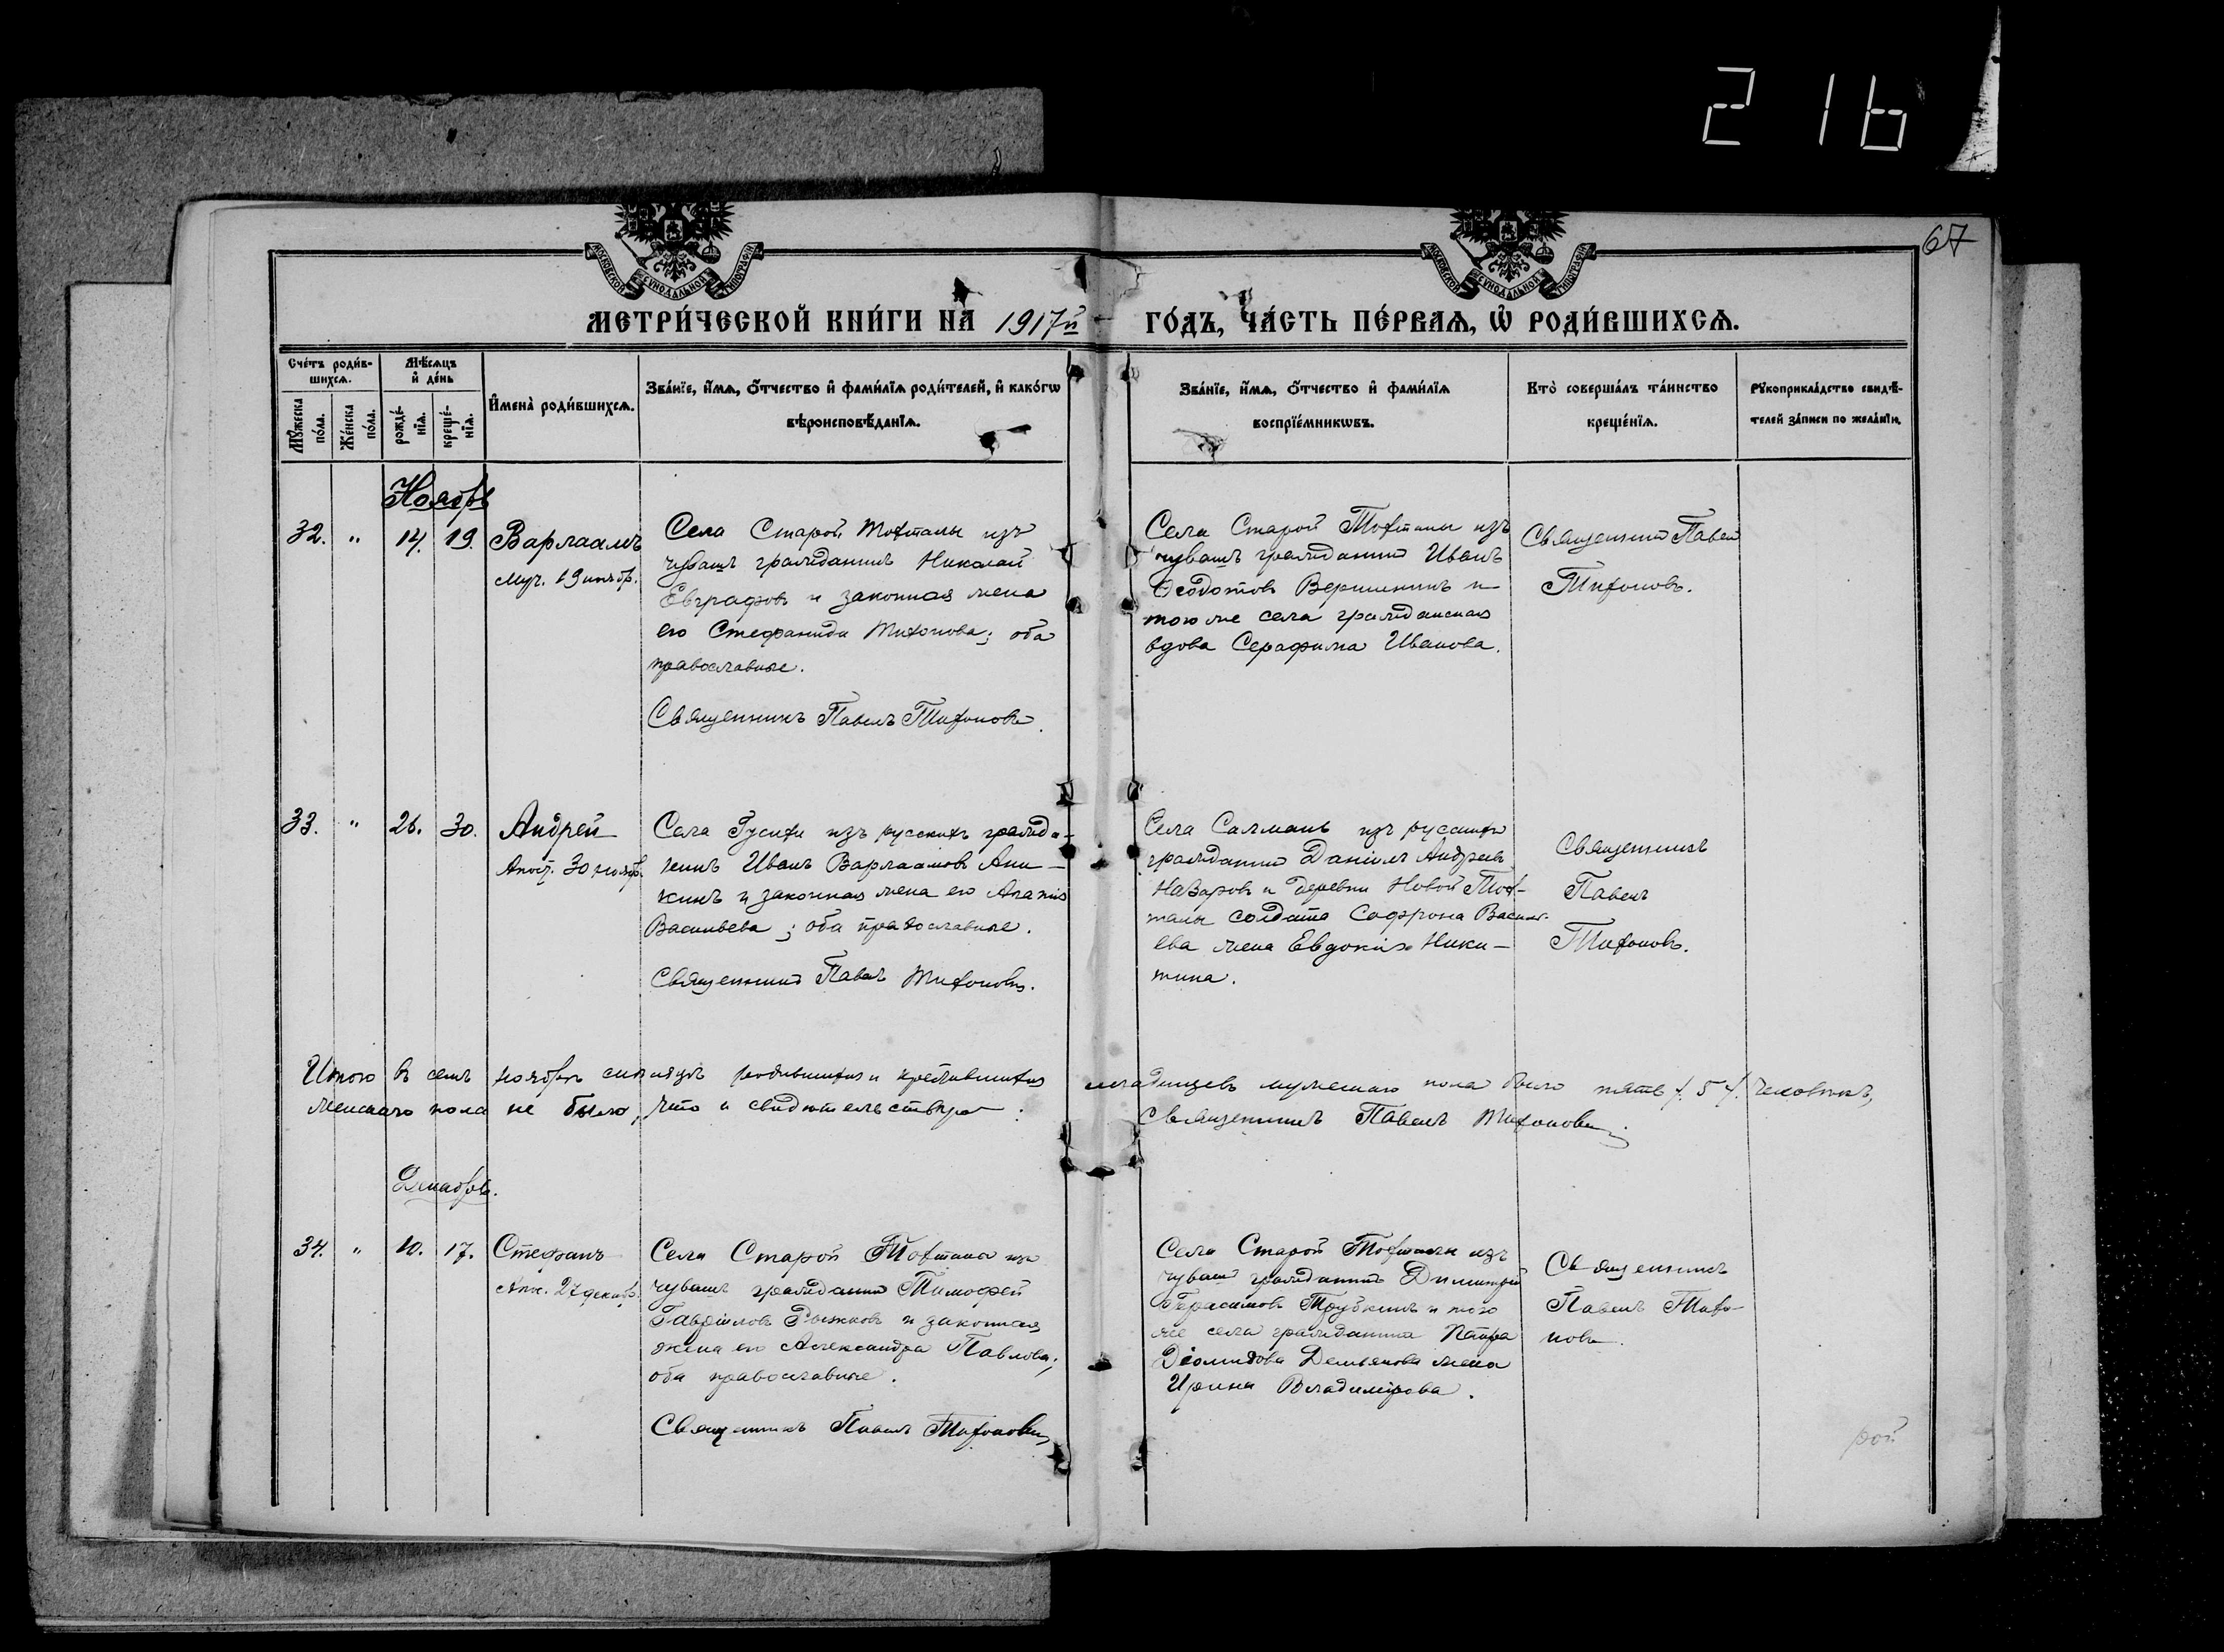 216
67
МОСКОВСКОЙ СУНОДАЛЬНОЙ ТИПОГРАФІИ
МОСКОВСКОЙ СУНОДАЛЬНОЙ ТИПОГРАФІИ
МЕТРИ́ЧЕСКОЙ КНИ́ГИ НА 1917й ГО́ДЪ, ЧА́СТЬ ПЕ́РВАѦ, Ѡ҆ РОДИ́ВШИХСѦ.
Сче́тъ роди́в-
шихсѧ.
Мѣ́сѧцъ
и҆ де́нь
Мꙋ́жеска
по́ла.
Же́нска
по́ла.
рожде́-
нїѧ.
креще́-
нїѧ.
И҆мена̀ роди́вшихсѧ.
Зва́нїе, и҆́мѧ, ѻ҆́тчество и҆ фами́лїѧ роди́телей, и҆ како́гѡ
вѣроисповѣ́данїѧ.
Зва́нїе, и҆́мѧ, ѻ҆́тчество и҆ фами́лїѧ
воспрїе́мникѡвъ.
Кто̀ соверша́лъ та́инство
креще́нїѧ.
Рꙋкоприкла́дство свидѣ́-
телей за́писи по жела́нїю.
Ноябрь
32. " 14. 19. Варлаамъ
муч. 19 ноябр.
Села Старой Тохталы изъ
чувашъ гражданинъ Николай
Евграфовъ и законная жена
его Стефанида Тихонова; оба
православные.
Священникъ Павелъ Тихоновъ.
Села Старой Тохталы изъ
чувашъ гражданинъ Иванъ
Ѳеодотовъ Вершининъ и
того же села гражданская
вдова Серафима Иванова.
Священникъ Павелъ
Тихоновъ.
33. " 26. 30. Андрей
Апост. 30 ноябр.
Села Гусихи изъ русскихъ гражда-
нинъ Иванъ Варлаамовъ Ани-
кинъ и законная жена его Агапія
Васильева; оба православные.
Священникъ Павелъ Тихоновъ.
Села Салмановъ изъ русскихъ
гражданинъ Даніилъ Андреевъ
Назаровъ и деревни Новой Тох-
талы солдата Софрона Василь-
ева жена Евдокія Ники-
тина.
Священникъ
Павелъ
Тихоновъ.
Итого въ семъ ноябрѣ мѣсяцѣ родившихся и крестившихся младенцевъ мужескаго пола было пять /. 5 /. человѣкъ,
женскаго пола не было, что и свидѣтельствую: Священникъ Павелъ Тихоновъ.
Декабрь.
34. " 10. 17. Стефанъ
Апос. 27 декабр.
Села Старой Тохталы изъ
чувашъ гражданинъ Тимофей
Гавріиловъ Рыжковъ и законная
жена его Александра Павлова;
оба православные.
Священникъ Павелъ Тихоновъ
Села Старой Тохталы изъ
чувашъ гражданинъ Димитрій
Герасимовъ Трубкинъ и того
же села гражданина Петра
Діомидова Демьянова жена
Ирина Владимірова.
Священникъ
Павелъ Тихо-
новъ.